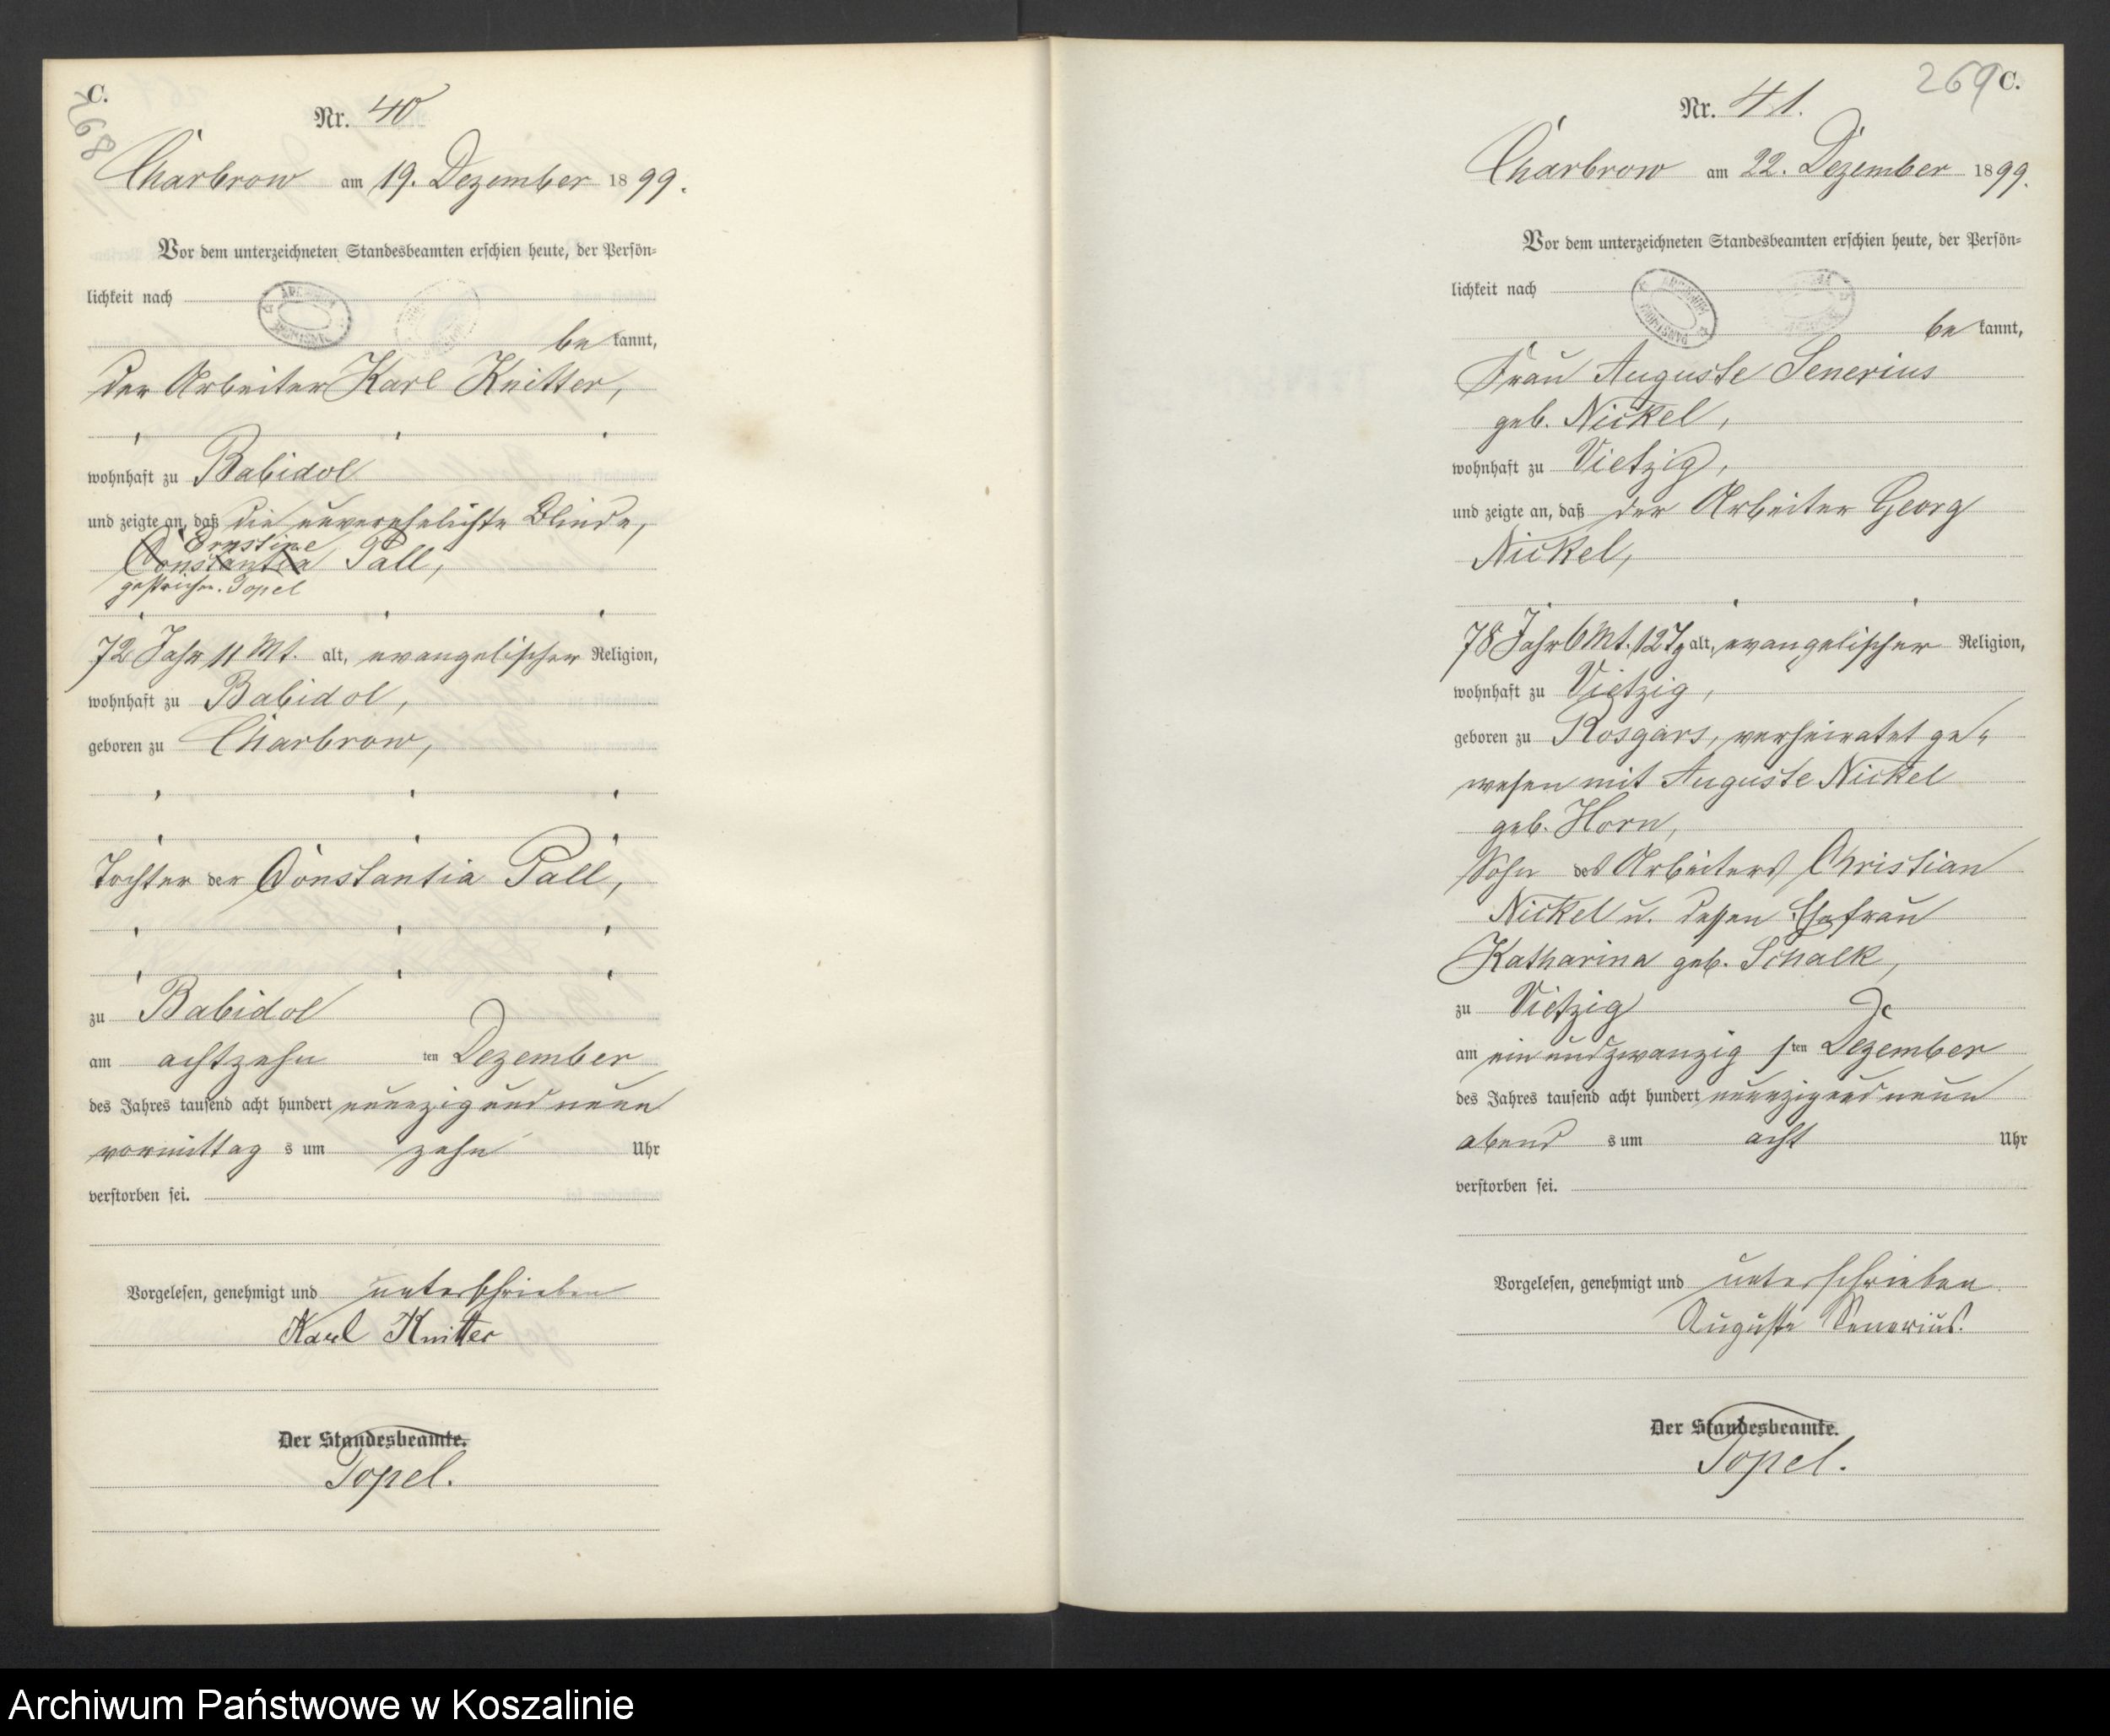 C.
268
Nr. 40
Charbrow am 19. Dezember 1899.
Vor dem unterzeichneten Standesbeamten erschien heute, der Persön=
lichkeit nach
be kannt,
der Arbeiter Karl Knitter,
wohnhaft zu Babidol
und zeigte an, daß die unverehelichte Blinde,
Ernstine
Constantia Pall,
gestrichen. Topel
72 Jahr 11 Mt. alt, evangelischer Religion,
wohnhaft zu Babidol,
geboren zu Charbrow,
Tochter der Constantia Pall,
zu Babidol
am achtzehn ten Dezember
des Jahres tausend acht hundert neunzig und neun
vormittag s um zehn Uhr
verstorben sei.
Vorgelesen, genehmigt und unterschrieben
Karl Knitter
Der Standesbeamte.
Topel.
269 C.
Nr. 41.
Charbrow am 22. Dezember 1899.
Vor dem unterzeichneten Standesbeamten erschien heute, der Persön=
lichkeit nach
be kannt,
Frau Auguste Senerius
geb. Nickel,
wohnhaft zu Vietzig,
und zeigte an, daß der Arbeiter Georg
Nickel,
78 Jahr 6 Mt. 12 Tg alt, evangelischer Religion,
wohnhaft zu Vietzig,
geboren zu Rosgars, verheiratet ge=
wesen mit Auguste Nickel
geb. Horn,
Sohn des Arbeiters Christian
Nickel u. dessen Ehefrau
Katharina geb. Schalk,
zu Vietzig
am ein und zwanzig sten Dezember
des Jahres tausend acht hundert neunzig und neun
abend s um acht Uhr
verstorben sei.
Vorgelesen, genehmigt und unterschrieben
Auguste Senerius.
Der Standesbeamte.
Topel.
Archiwum Państwowe w Koszalinie